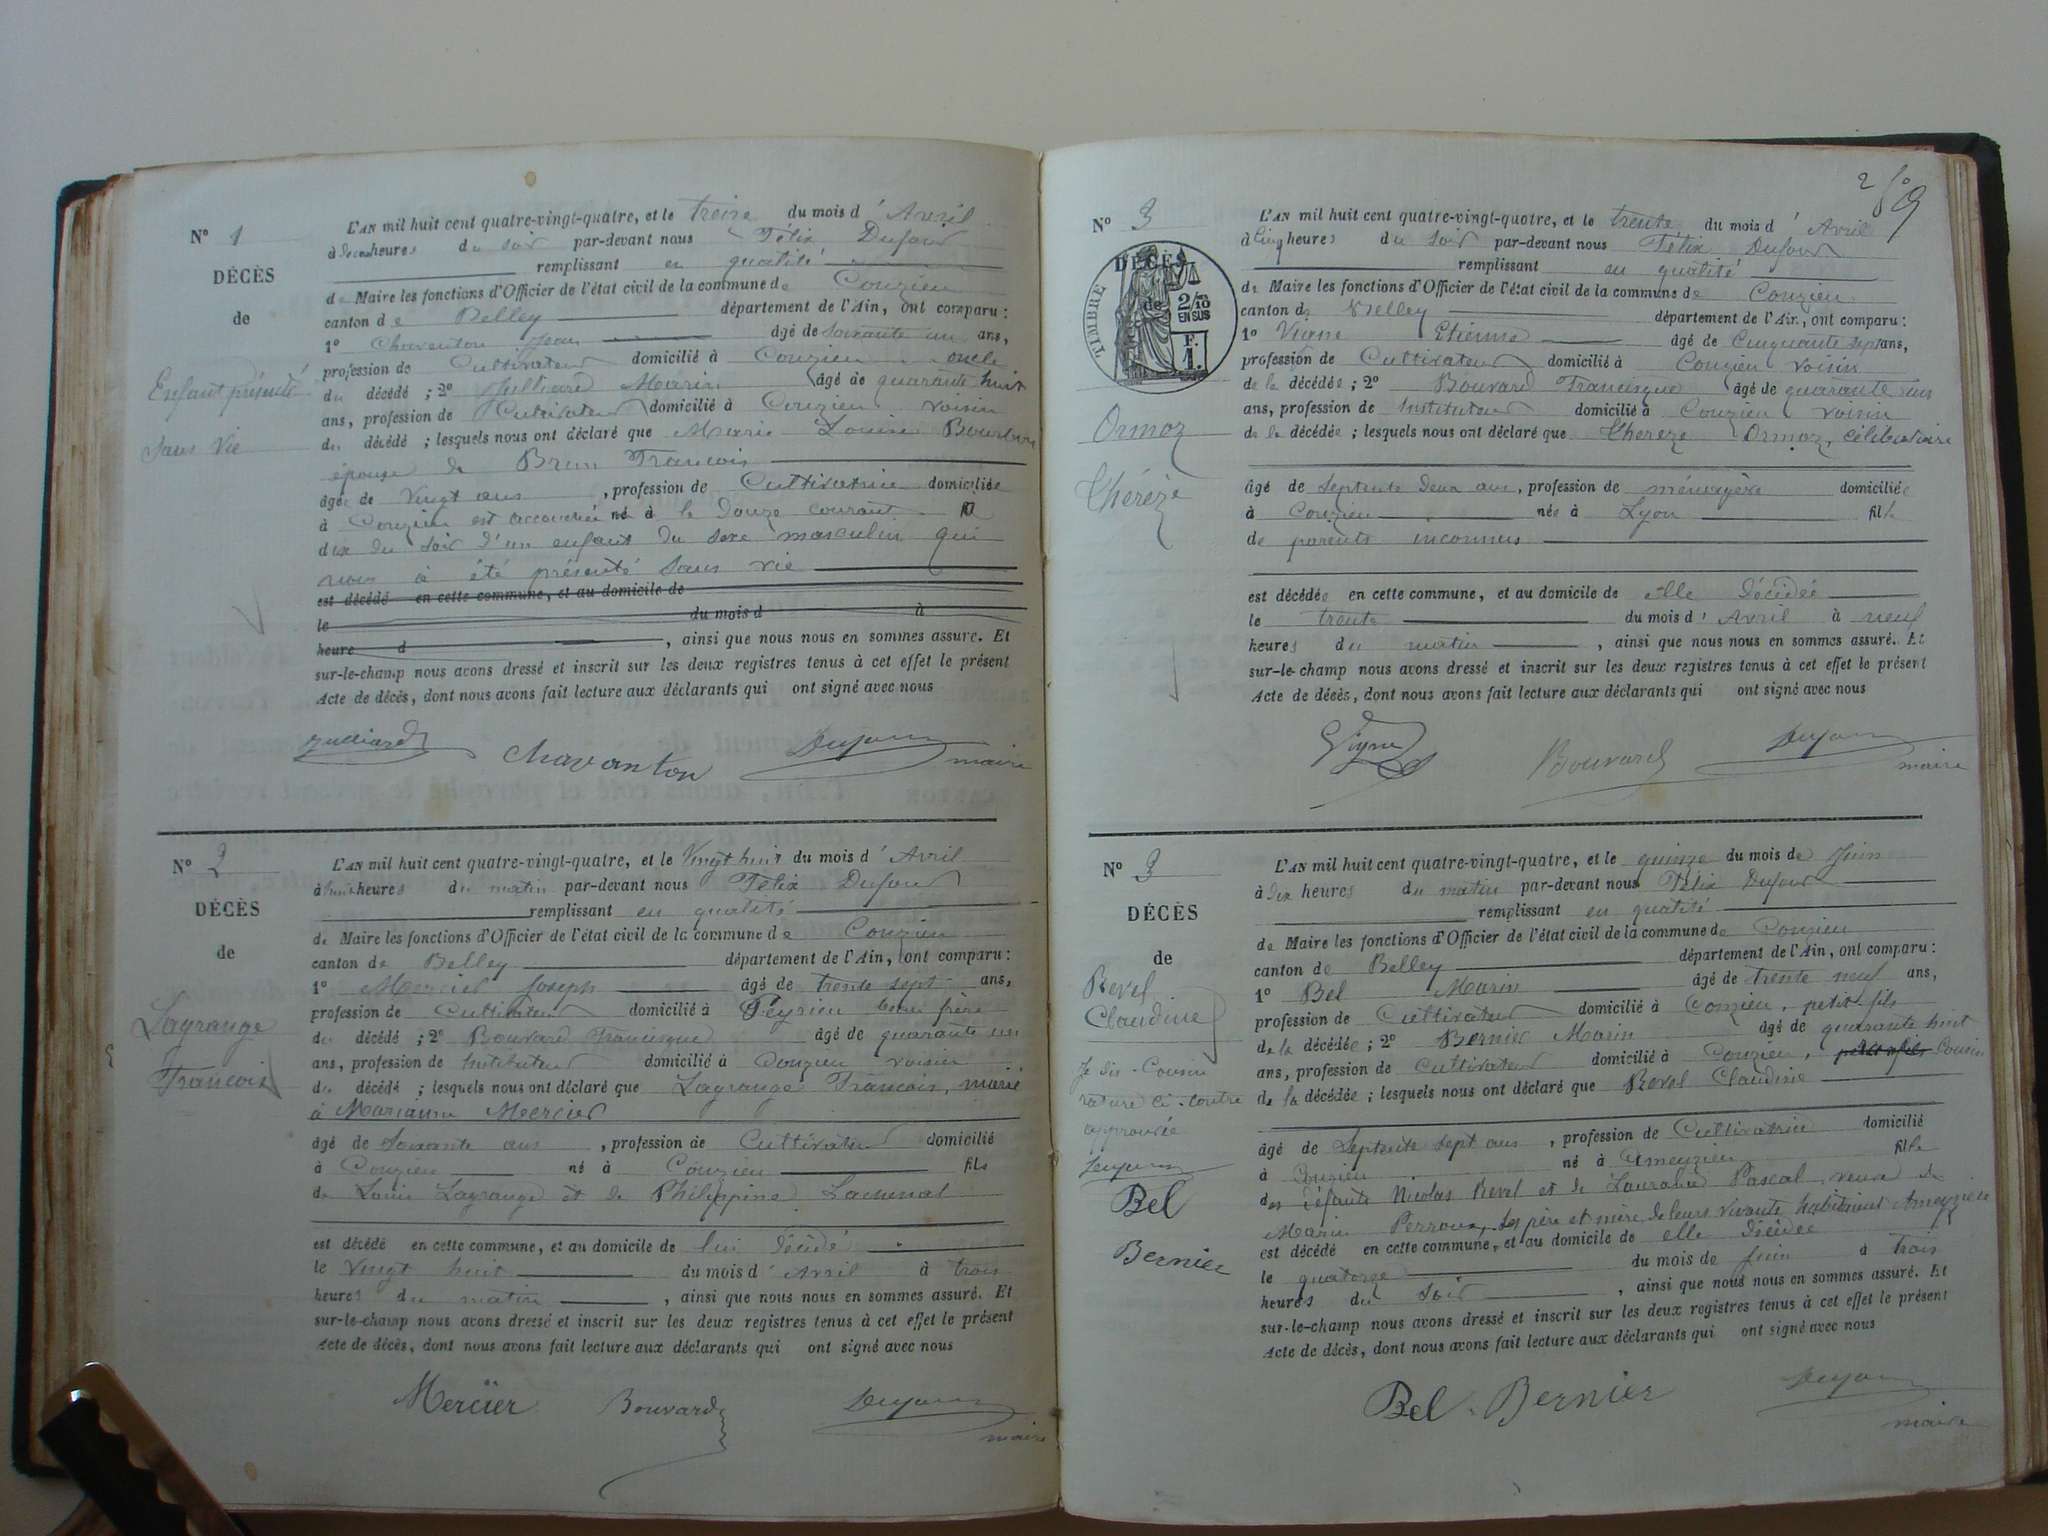 N° 1
DÉCÈS
de
Enfant présenté
Sans Vie
L'AN mil huit cent quatre-vingt-quatre, et le treize du mois d' Avril
à heures du soir par-devant nous Félix Dufour
remplissant en qualité
de Maire les fonctions d'Officier de l'état civil de la commune de Conzieu
canton de Belley département de l'Ain, ont comparu :
1° Chavanton Jean âgé de soixante un ans,
profession de Cultivateur domicilié à Conzieu oncle
du décédé ; 2° Julliard Marin âgé de quarante huit
ans, profession de Cultivateur domicilié à Conzieu voisin
du décédé ; lesquels nous ont déclaré que Marie Louise
épouse de Brun François
âgée de vingt ans, profession de Cultivatrice domiciliée
à Conzieu est accouchée né à le douze courant à
dix du soir d'un enfant du sexe masculin qui
nous a été présenté sans vie
est décédé en cette commune, et au domicile de
le du mois d à
heure d , ainsi que nous nous en sommes assuré. Et
sur-le-champ nous avons dressé et inscrit sur les deux registres tenus à cet effet le présent
Acte de décès, dont nous avons fait lecture aux déclarants qui ont signé avec nous
Julliard Chavanton Dufour
maire
N° 2
DÉCÈS
de
Lagrange
François
L'AN mil huit cent quatre-vingt-quatre, et le Vingt huit du mois d' Avril
à huit heures du matin par-devant nous Félix Dufour
remplissant en qualité
de Maire les fonctions d'Officier de l'état civil de la commune de Conzieu
canton de Belley département de l'Ain, ont comparu :
1° Mercier Joseph âgé de trente sept ans,
profession de Cultivateur domicilié à Peyrieu beau frère
du décédé ; 2° Bouvard Francisque âgé de quarante un
ans, profession de Instituteur domicilié à Conzieu voisin
du décédé ; lesquels nous ont déclaré que Lagrange François, marié
à Marianne Mercier
âgé de Soixante ans, profession de Cultivateur domicilié
à Conzieu né à Conzieu fils
de Louis Lagrange et de Philippine
est décédé en cette commune, et au domicile de lui décédé
le vingt huit du mois d' Avril à trois
heures du matin, ainsi que nous nous en sommes assuré. Et
sur-le-champ nous avons dressé et inscrit sur les deux registres tenus à cet effet le présent
Acte de décès, dont nous avons fait lecture aux déclarants qui ont signé avec nous
Mercier Bouvard Dufour
maire
2
N° 3
DÉCÈS
de
TIMBRE
2/10
EN SUS
F.
1.
Ormoz
Thérèze
L'AN mil huit cent quatre-vingt-quatre, et le trente du mois d' Avril
à Cinq heures du soir par-devant nous Félix Dufour
remplissant en qualité
de Maire les fonctions d'Officier de l'état civil de la commune de Conzieu
canton de Belley département de l'Ain, ont comparu :
1° Vigne Etienne âgé de Cinquante sept ans,
profession de Cultivateur domicilié à Conzieu voisin
de la décédée ; 2° Bouvard Francisque âgé de quarante un
ans, profession de Instituteur domicilié à Conzieu voisin
de la décédée ; lesquels nous ont déclaré que Thereze Ormoz, célibataire
âgé de septente deux ans, profession de ménagère domiciliée
à Conzieu née à Lyon fille
de parents inconnus
est décédée en cette commune, et au domicile de elle décédée
le trente du mois d' Avril à neuf
heures du matin, ainsi que nous nous en sommes assuré. Et
sur-le-champ nous avons dressé et inscrit sur les deux registres tenus à cet effet le présent
Acte de décès, dont nous avons fait lecture aux déclarants qui ont signé avec nous
Vigne Bouvard Dufour
maire
N° 3
DÉCÈS
de
Revel
Claudine
Je dis Cousin
rature ci-contre
approuvée
Dufour
Bel
Bernier
L'AN mil huit cent quatre-vingt-quatre, et le quinze du mois de Juin
à dix heures du matin par-devant nous Félix Dufour
remplissant en qualité
de Maire les fonctions d'Officier de l'état civil de la commune de Conzieu
canton de Belley département de l'Ain, ont comparu :
1° Bel Marin âgé de trente neuf ans,
profession de Cultivateur domicilié à Conzieu, petit-fils
de la décédée ; 2° Bernier Marin âgé de quarante huit
ans, profession de Cultivateur domicilié à Conzieu, petit-fils Cousin
de la décédée ; lesquels nous ont déclaré que Revel Claudine
âgé de septente sept ans, profession de Cultivatrice domicilié
à Conzieu né à Ameyzieu fille
des défunts Nicolas Revel et de Pascal veuve de
Marin Perroux, les père et mère de leurs vivants habitaient
est décédé en cette commune, et au domicile de elle décédée
le quatorze du mois de Juin à trois
heures du soir, ainsi que nous nous en sommes assuré. Et
sur-le-champ nous avons dressé et inscrit sur les deux registres tenus à cet effet le présent
Acte de décès, dont nous avons fait lecture aux déclarants qui ont signé avec nous
Bel Bernier Dufour
maire